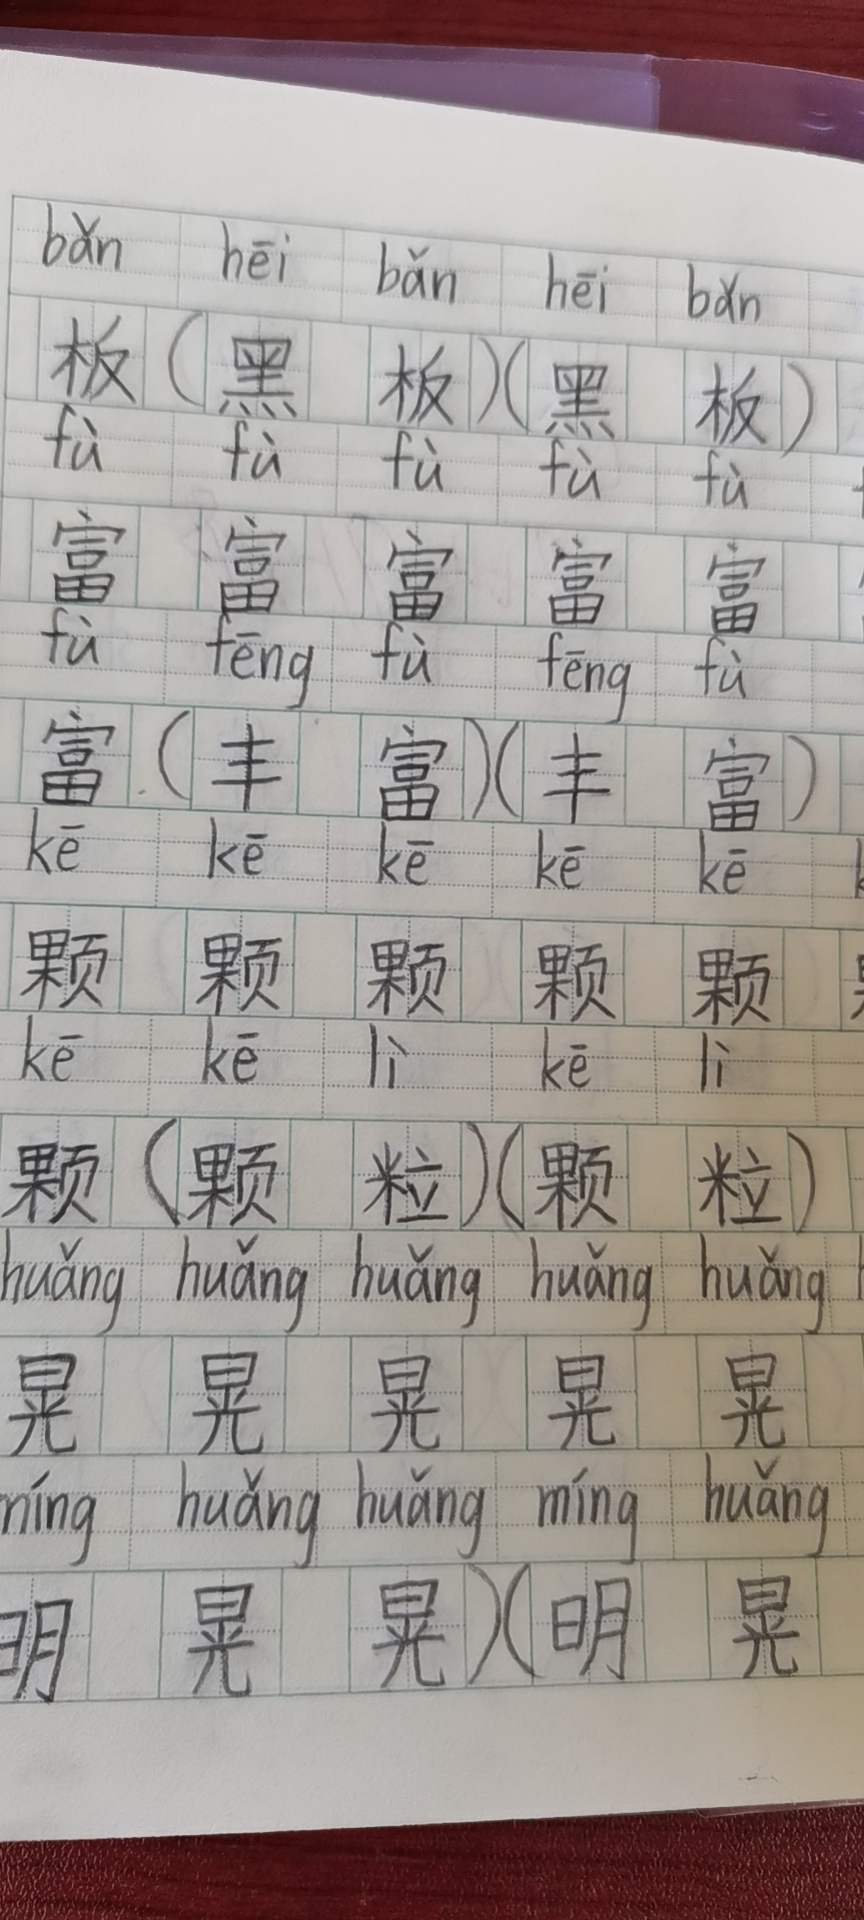 bǎn hēi bǎn hēi bǎn
板(黑板)(黑板)
fù fù fù fù fù
富 富 富 富 富
fù fēng fù fēng fù
富(丰富)(丰富)
kē kē kē kē kē
颗 颗 颗 颗 颗
kē kē lì kē lì
颗(颗粒)(颗粒)
huǎng huǎng huǎng huǎng huǎng
晃 晃 晃 晃 晃
míng huǎng huǎng míng huǎng
明晃晃)(明晃